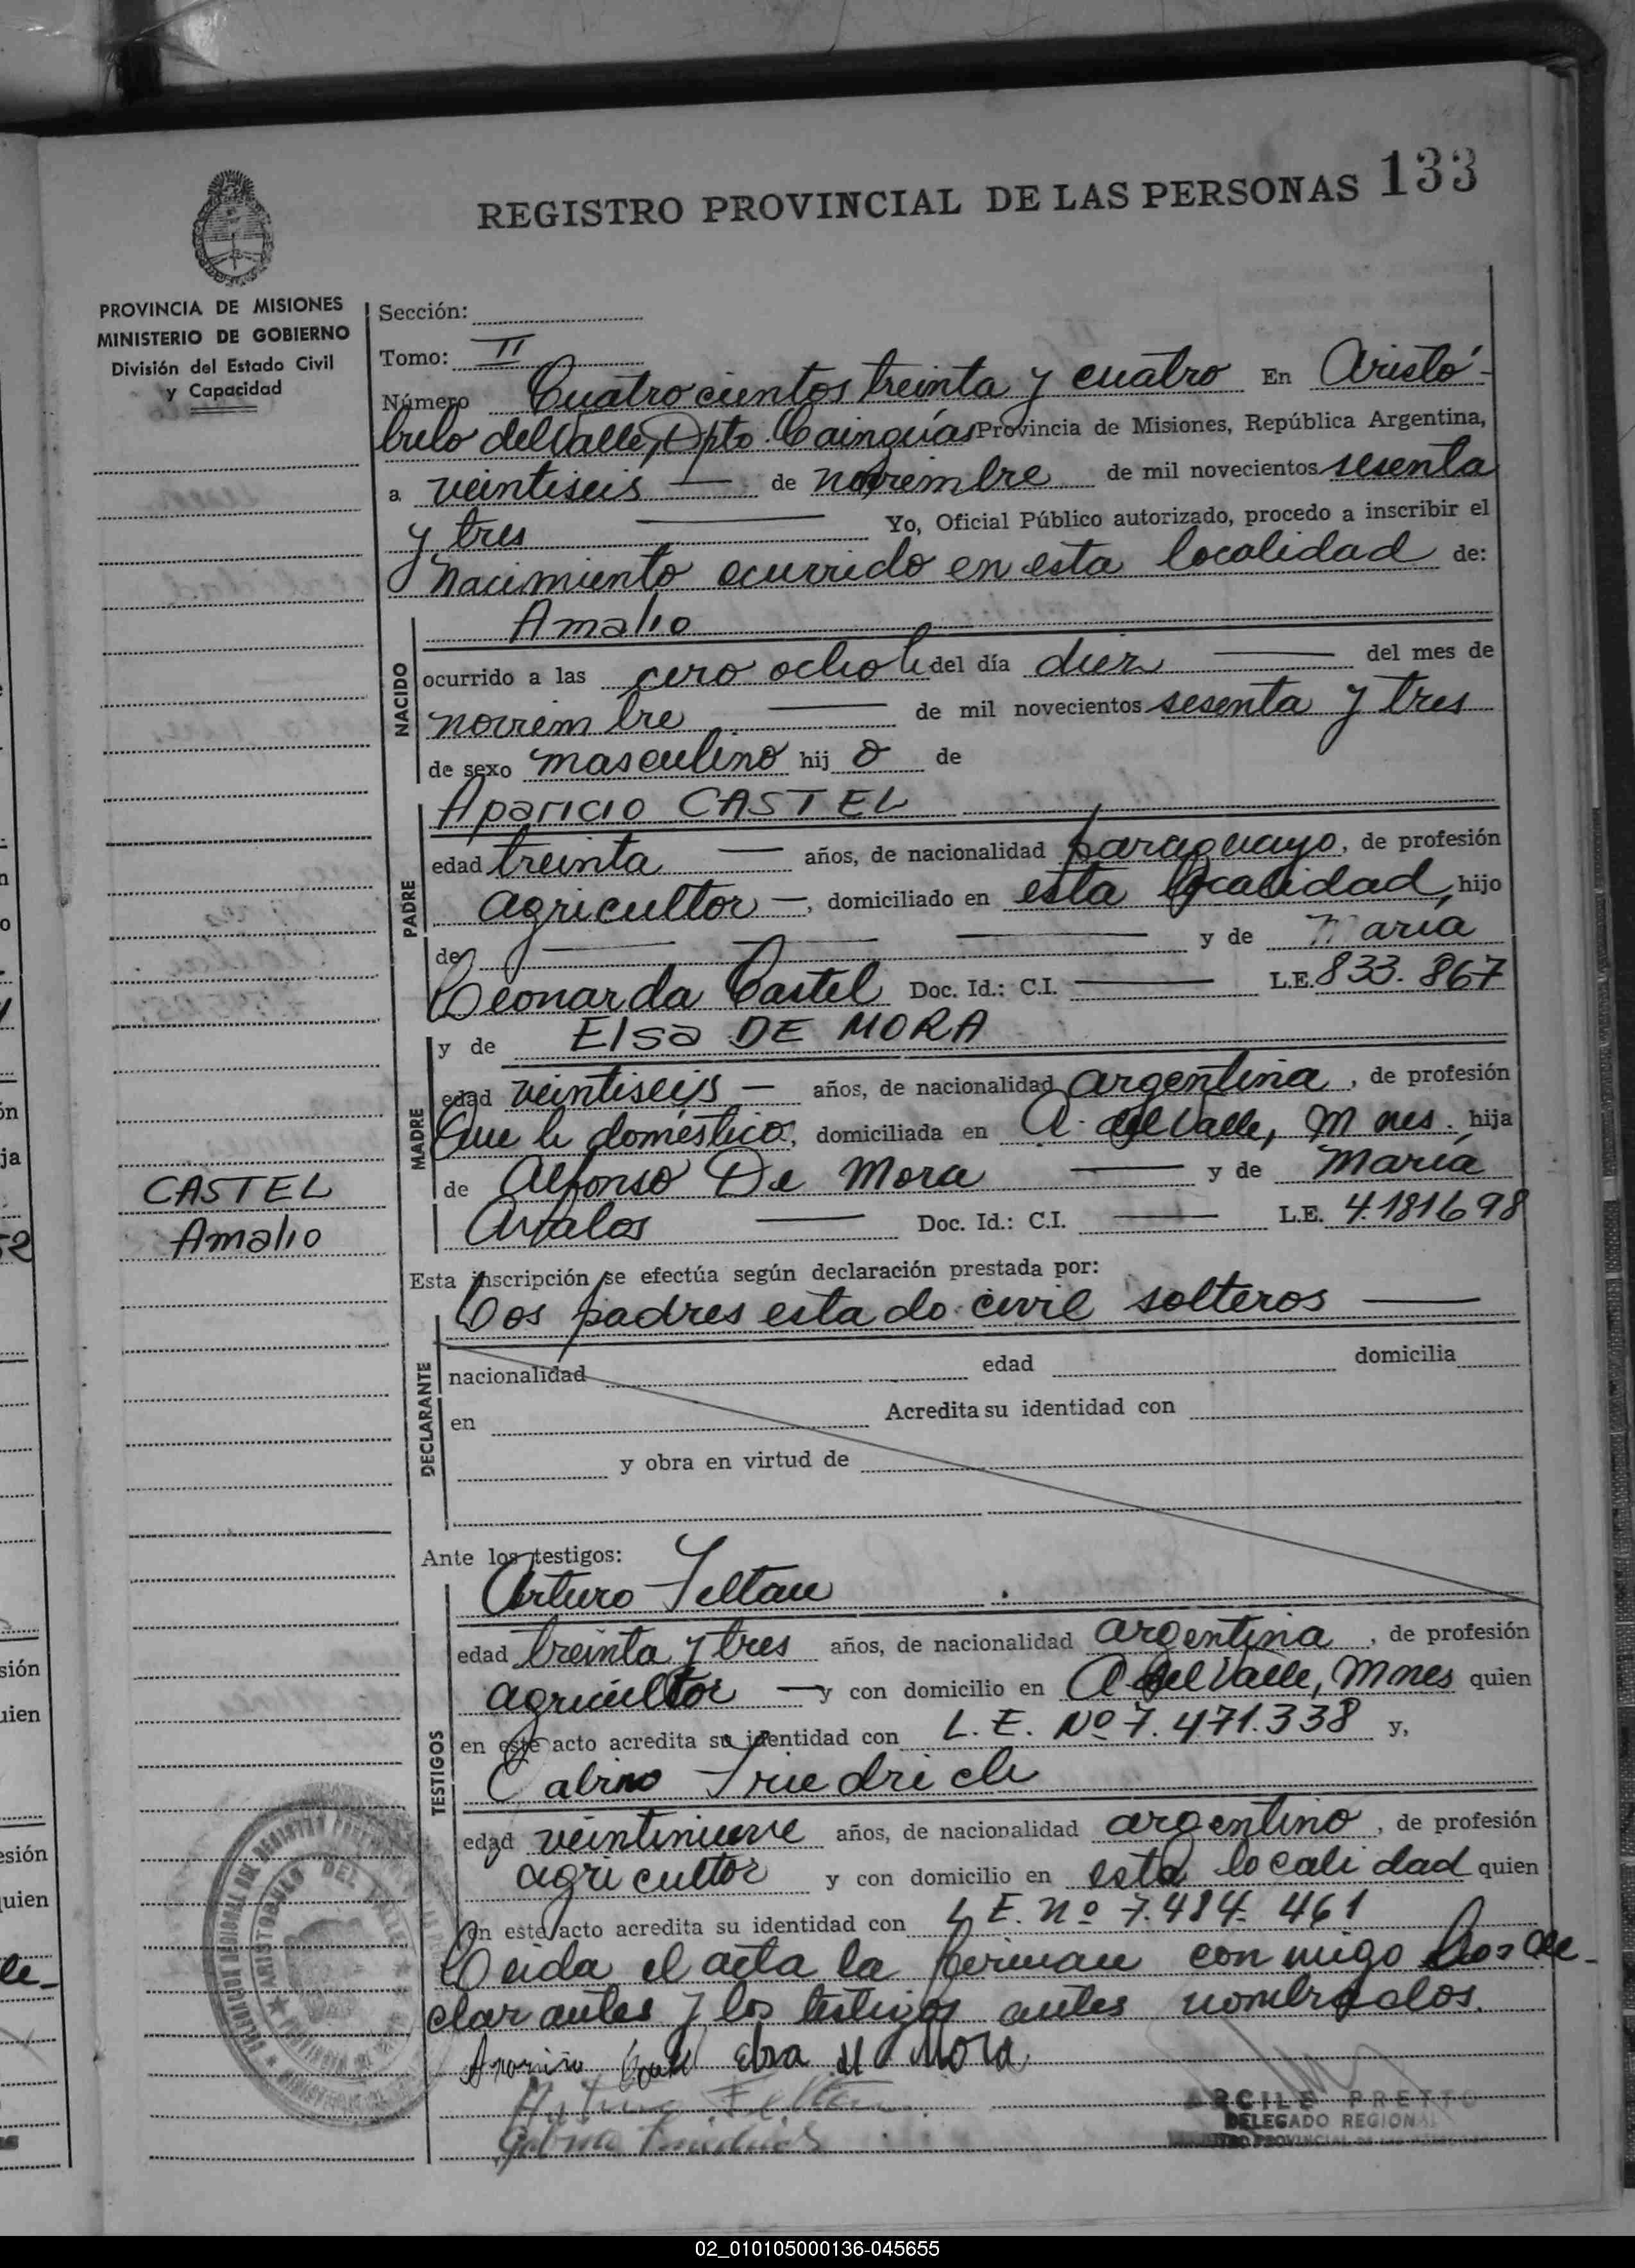 REGISTRO PROVINCIAL DE LAS PERSONAS 133
PROVINCIA DE MISIONES
MINISTERIO DE GOBIERNO
División del Estado Civil
y Capacidad
Sección:
Tomo: II
Número Cuatrocientos treinta y cuatro En Aristó-
bulo del Valle, Dpto. Cainguás Provincia de Misiones, República Argentina,
a veintiseis — de noviembre de mil novecientos sesenta
y tres — Yo, Oficial Público autorizado, procedo a inscribir el
Nacimiento ocurrido en esta localidad de:
NACIDO
Amalio
ocurrido a las cero ocho h del día diez — del mes de
noviembre — de mil novecientos sesenta y tres
de sexo masculino hij o de
PADRE
Aparicio CASTEL
edad treinta — años, de nacionalidad paraguayo, de profesión
agricultor —, domiciliado en esta localidad, hijo
de — — — y de María
Leonarda Castel Doc. Id.: C.I. — L.E. 833.867
MADRE
y de Elsa DE MORA
edad veintiseis — años, de nacionalidad argentina, de profesión
Que h domésticos, domiciliada en A. del Valle, Mnes. hija
de Alfonso De Mora — y de María
Avalos — Doc. Id.: C.I. — L.E. 4.181698
CASTEL
Amalio
Esta inscripción se efectúa según declaración prestada por:
Los padres estado civil solteros —
DECLARANTE
nacionalidad edad domicilia
en Acredita su identidad con
y obra en virtud de
Ante los testigos:
TESTIGOS
Arturo Feltau
edad treinta y tres años, de nacionalidad argentina, de profesión
agricultor — y con domicilio en A del Valle, Mnes quien
en este acto acredita su identidad con L. E. Nº 7.471.338 y,
Friedrich
edad veintinueve años, de nacionalidad argentino, de profesión
agricultor y con domicilio en esta localidad quien
en este acto acredita su identidad con L E. Nº 7.484.461
Leida el acta la firman conmigo los de-
clarantes y los testigos antes nombrados.
Elsa de Mora
ARCILE PRETTO
DELEGADO REGIONAL
ARISTOBULO DEL VALLE
02_010105000136-045655